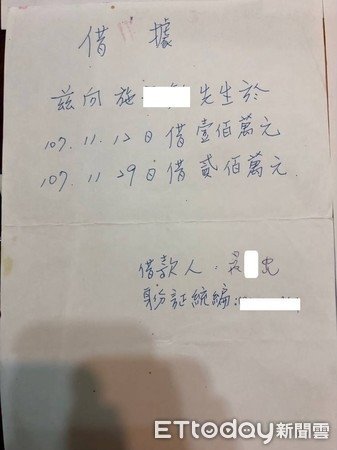 借據
茲向施 先生於
107.11.12日借壹佰萬元
107.11.29日借貳佰萬元
借款人: 忠
身份証統編:
ETtoday新聞雲